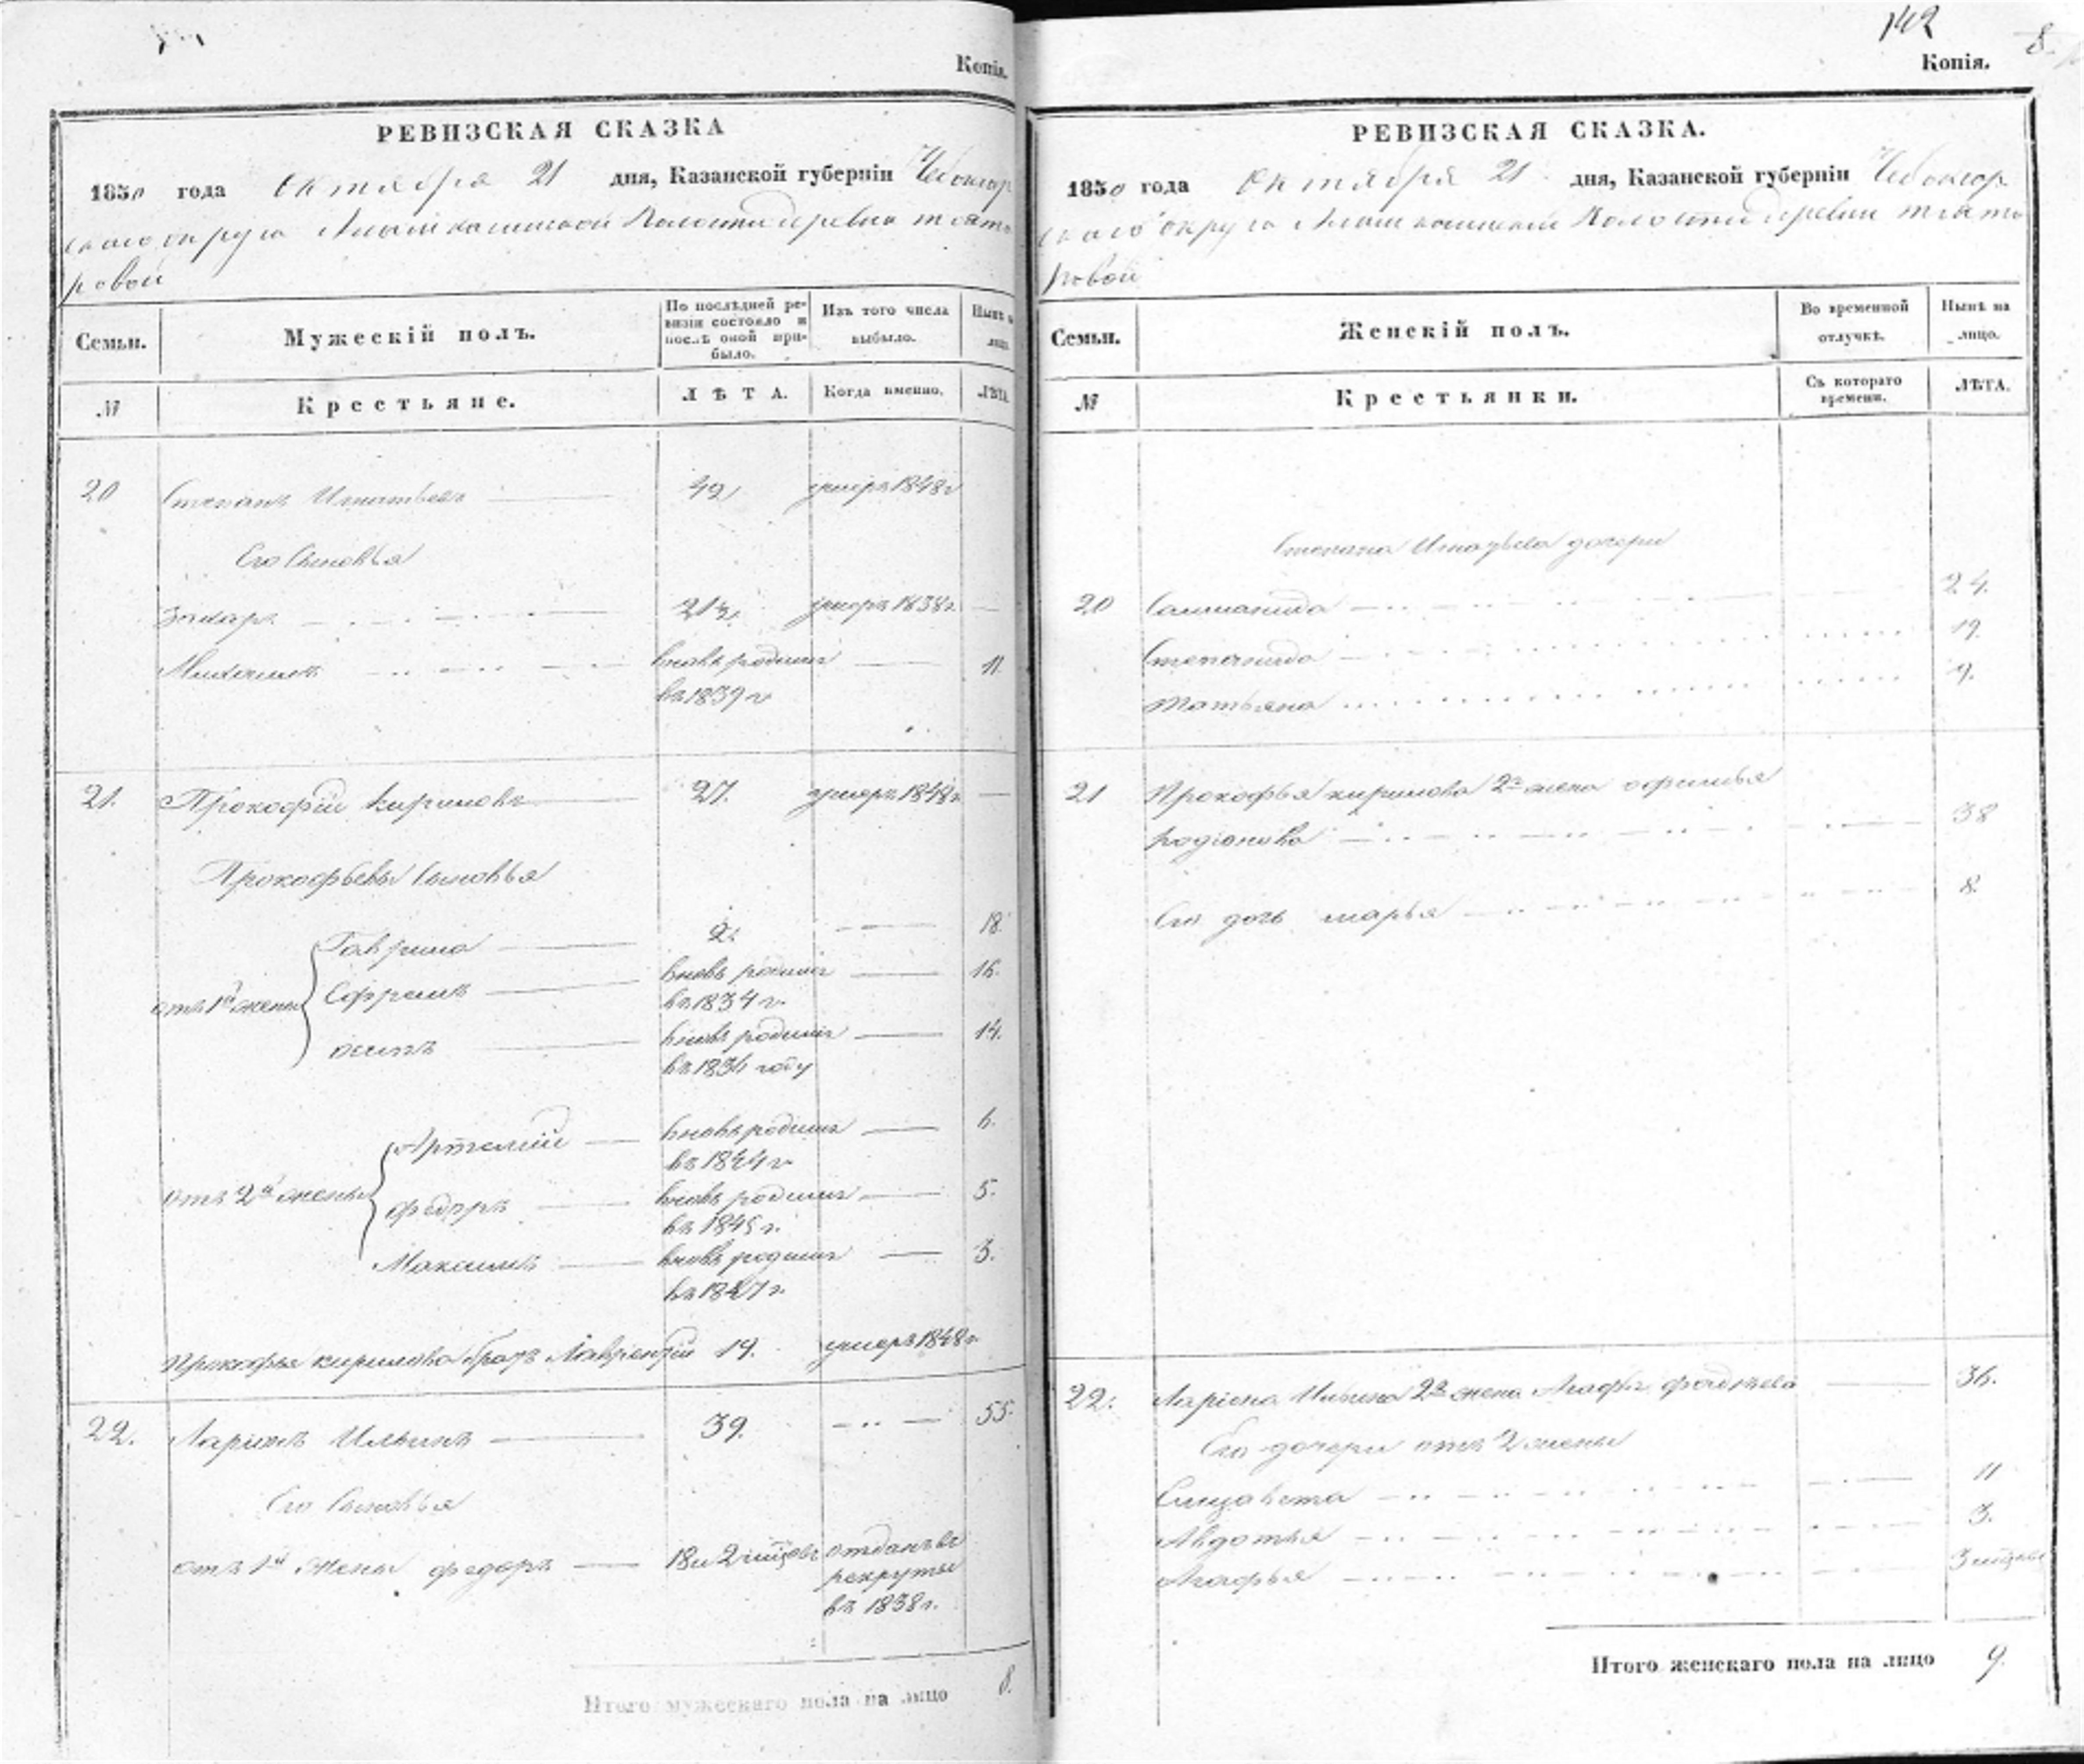 Копія.
РЕВИЗСКАЯ СКАЗКА
1850 года Октября 21 дня, Казанской губерніи Чебоксар
скаго округа Волости деревни
ровой
Семьи.
Мужескій полъ.
По послѣдней ре-
визіи состояло и
послѣ оной при-
было.
Изъ того числа
выбыло.
Нынѣ
лицо
№
Крестьяне.
ЛѢТА.
Когда именно.
ЛѢТА.
20 Степанъ Игнатьевъ 42 умеръ 1848 г
Его Сыновья
Захаръ умеръ 1838 г.
вновь родился 11
въ 1839 г
21. Прокофій Кириловъ 27. умеръ 1848 г.
Прокофьевы Сыновья
от 1й жены
Гаврила 2. 18.
Ефремъ вновь родился 16.
въ 1834 г.
осипъ вновь родился 14.
въ 1836 году
отъ 2й жены
Артемій вновь родился 6.
въ 1844 г
федоръ вновь родился 5.
въ 1845 г.
Максимъ вновь родился 3.
въ 1847 г.
Прокофья кирилова братъ Лаврентій 19. умеръ 1848 г
22. Ларіонъ Ильинъ 39. 55.
Его Сыновья
отъ 1й жены федоръ 18 и 2 отданъ въ
рекруты
въ 1838 г.
Итого мужескаго пола на лицо 8.
142
8.
Копія.
РЕВИЗСКАЯ СКАЗКА.
1850 года Октября 21 дня, Казанской губерніи Чебоксар
скаго округа Волости деревни
ровой
Семьи.
Женскій полъ.
Во временной
отлучкѣ.
Нынѣ на
лицо.
№
Крестьянки.
Съ котораго
времени.
ЛѢТА.
Степана Игнатьева дочери
20 24.
Степанида 19.
Татьяна 9.
21 Прокофья кирилова 2я жена офимья
родіонова 38
Его дочь марья 8.
22. Ларіона Ильина 2я жена 36.
Его дочери отъ 2 жены
Елизавета 11
Авдотья 3.
Агафья 3
Итого женскаго пола на лицо 9.